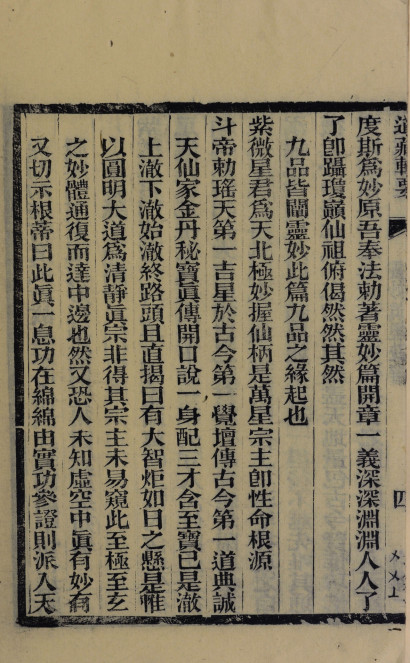 道藏輯要
四
度斯爲妙原吾奉法勅著靈妙篇開章一義深深淵淵人人了
了卽躡瓊巓仙祖俯偈然然其然
九品皆闡靈妙此篇九品之緣起也
紫微星君爲天北極妙握仙柄是萬星宗主卽性命根源
斗帝勅瑤天第一吉星於古今第一覺壇傳古今第一道典誠
天仙家金丹秘寶眞傳開口說一身配三才含至寶已是澈
上澈下澈始澈終路頭且直揭曰有大智炬如日之懸是惟
以圓明大道爲清靜眞宗非得其宗主未易窺此至極至玄
之妙體通復而達中邊也然又恐人未知虛空中眞有妙有
又切示根蒂曰此眞一息功在綿綿由實功參證則派人天